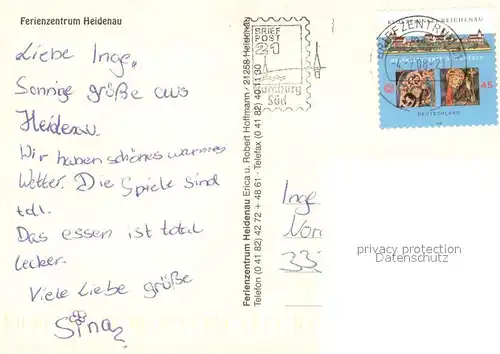 Ferienzentrum Heidenau
Liebe Inge,
Sonnige grüße aus
Heidenau.
Wir haben schönes warmes
Wetter. Die Spiele sind
toll.
Das essen ist total
lecker.
Viele Liebe grüße
Sina
Ferienzentrum Heidenau Erica u. Robert Hoffmann · 21258 Heidenau
Telefon (0 41 82) 42 72 + 48 61 · Telefax (0 41 82) 40 11 30
BRIEF
POST
21
Hamburg
Süd
BRIEFZENTRUM
KLOSTERINSEL REICHENAU
45
DEUTSCHLAND
Inge
33
privacy protection
Datenschutz